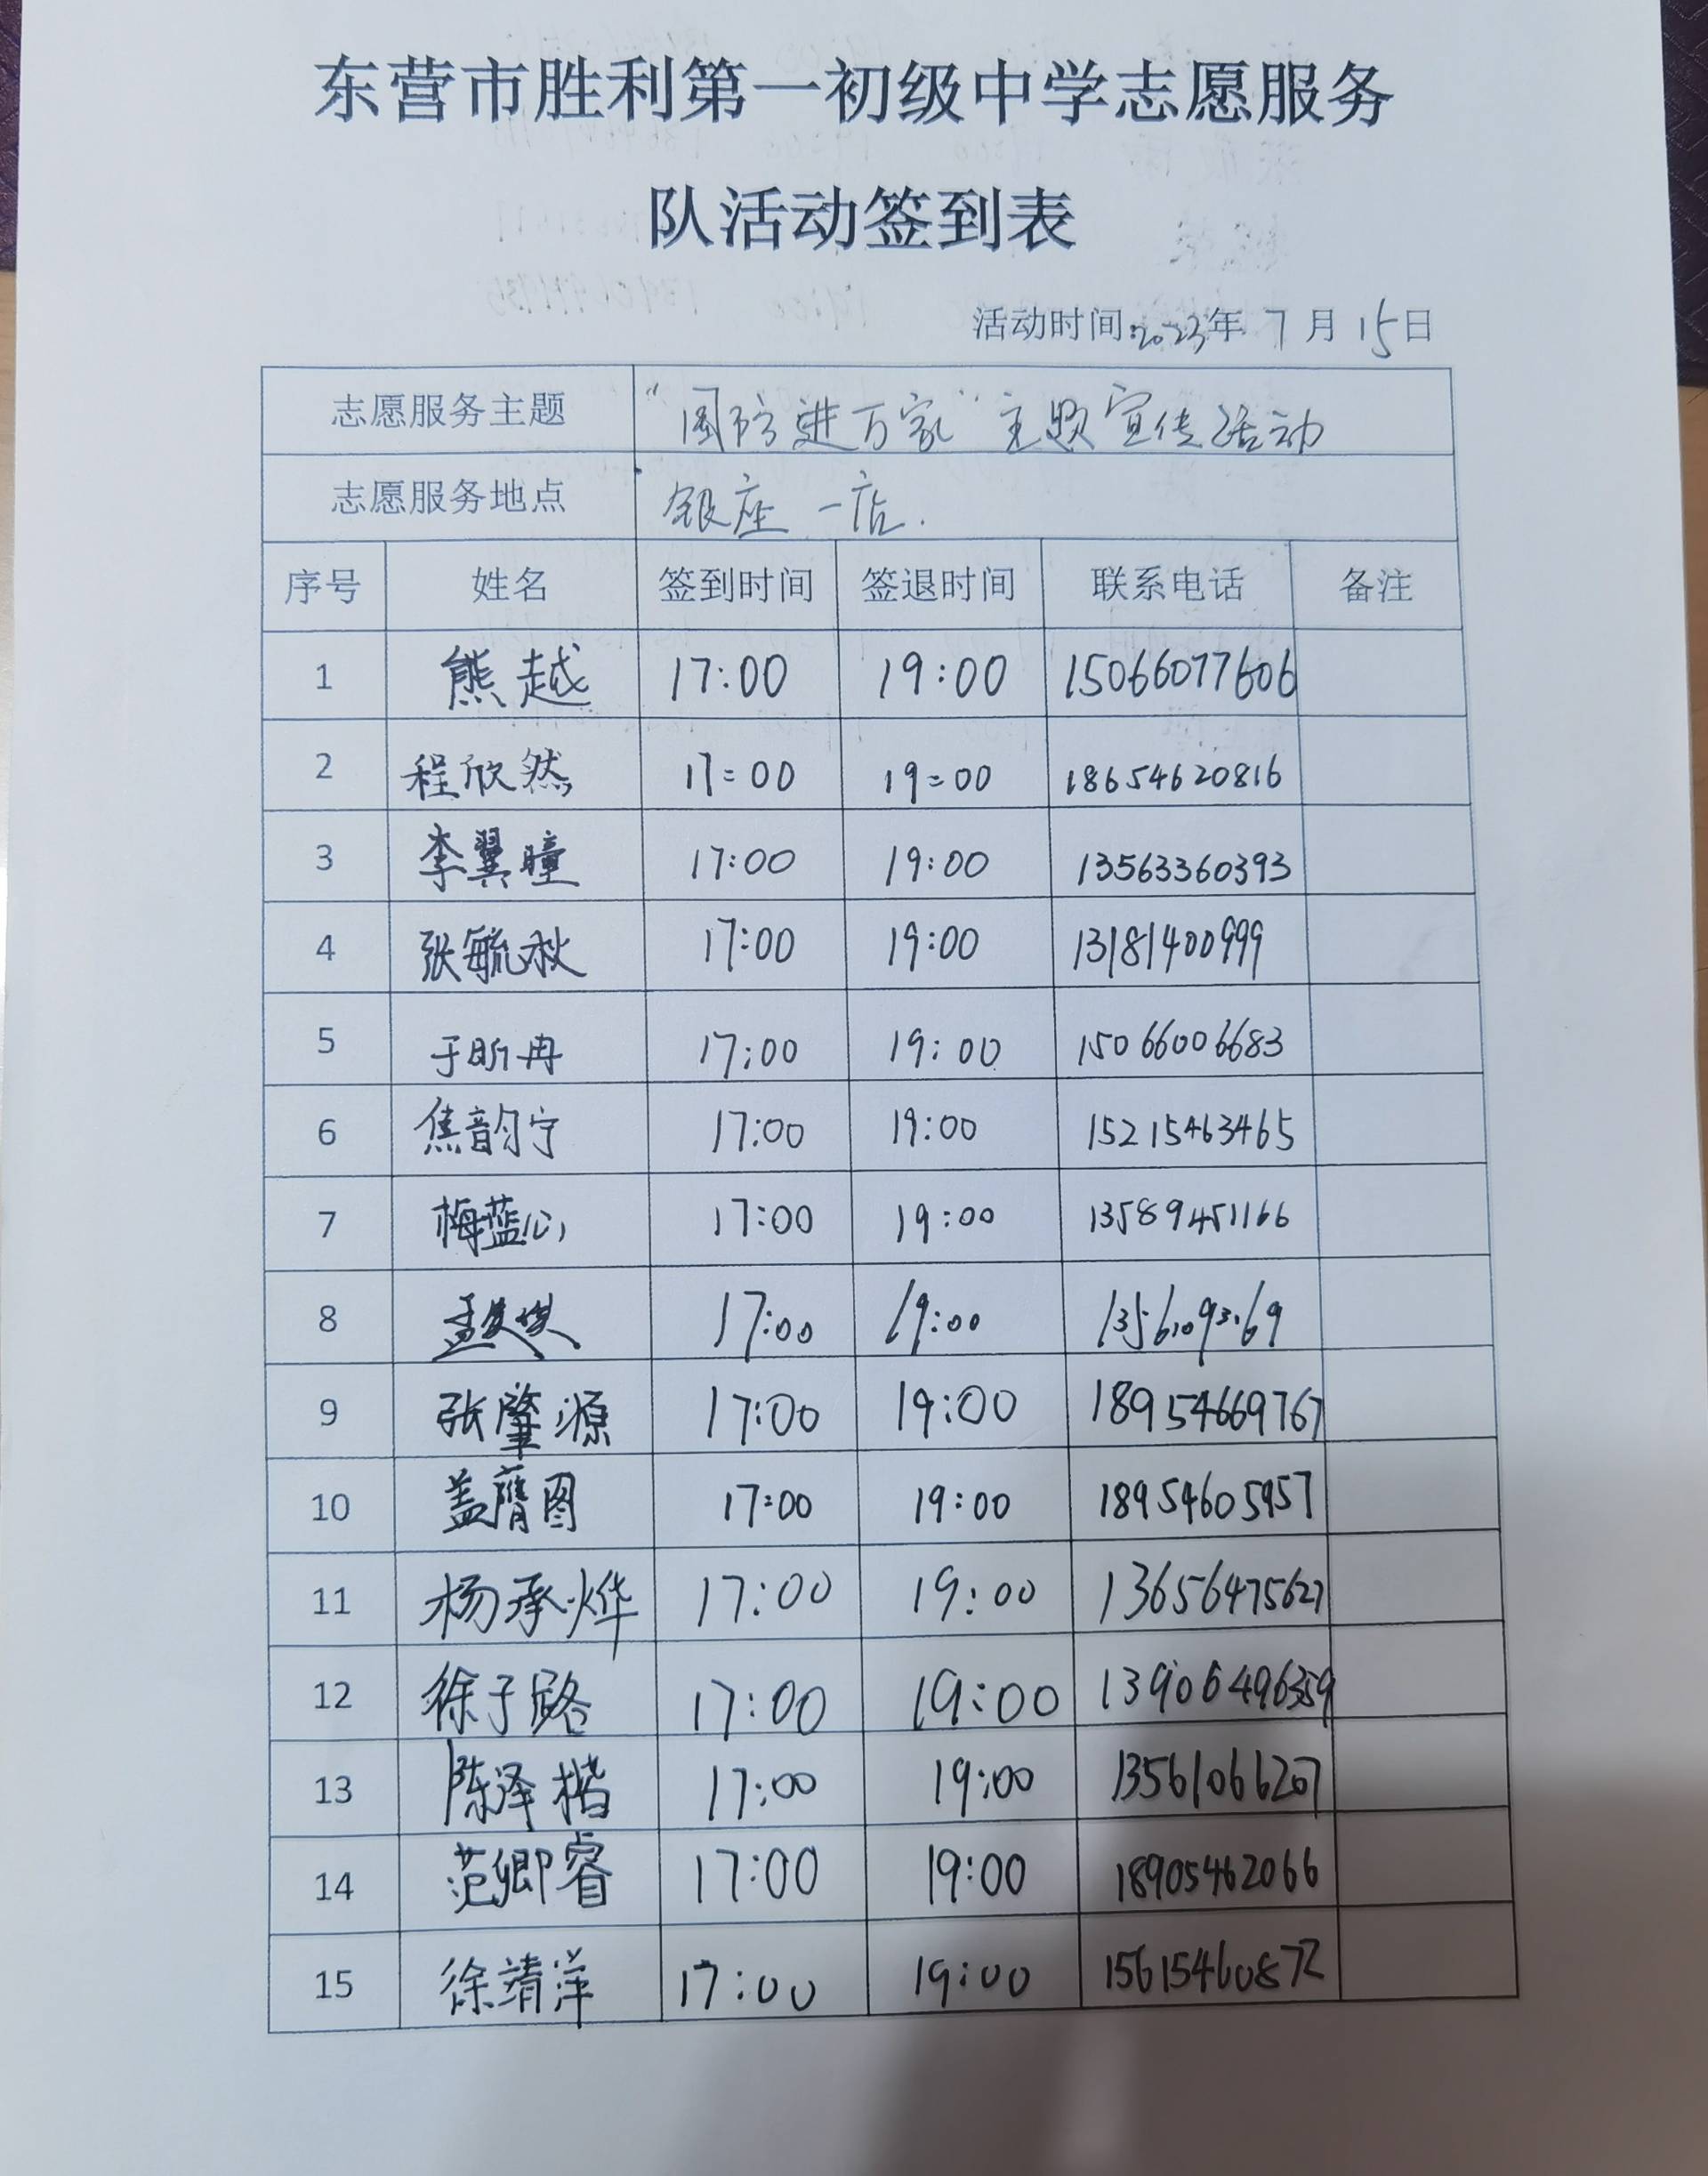 东营市胜利第一初级中学志愿服务
队活动签到表
活动时间:2023年7月15日
志愿服务主题 “国防进万家”主题宣传活动
志愿服务地点 银座一店.
序号 姓名 签到时间 签退时间 联系电话 备注
1 熊越 17:00 19:00 15066077606
2 程欣然 17:00 19:00 18654620816
3 李翼瞳 17:00 19:00 13563360393
4 张毓秋 17:00 19:00 13181400999
5 于昕冉 17:00 19:00 15066006683
6 焦韵宁 17:00 19:00 15215463465
7 梅蓝心 17:00 19:00 13589451166
8 17:00 19:00
9 张肇源 17:00 19:00 18954669767
10 盖膺图 17:00 19:00 18954605957
11 杨承烨 17:00 19:00 13656475627
12 徐子 17:00 19:00
13 陈泽楷 17:00 19:00 13561066207
14 范卿睿 17:00 19:00 18905462066
15 徐靖萍 17:00 19:00 15615460872